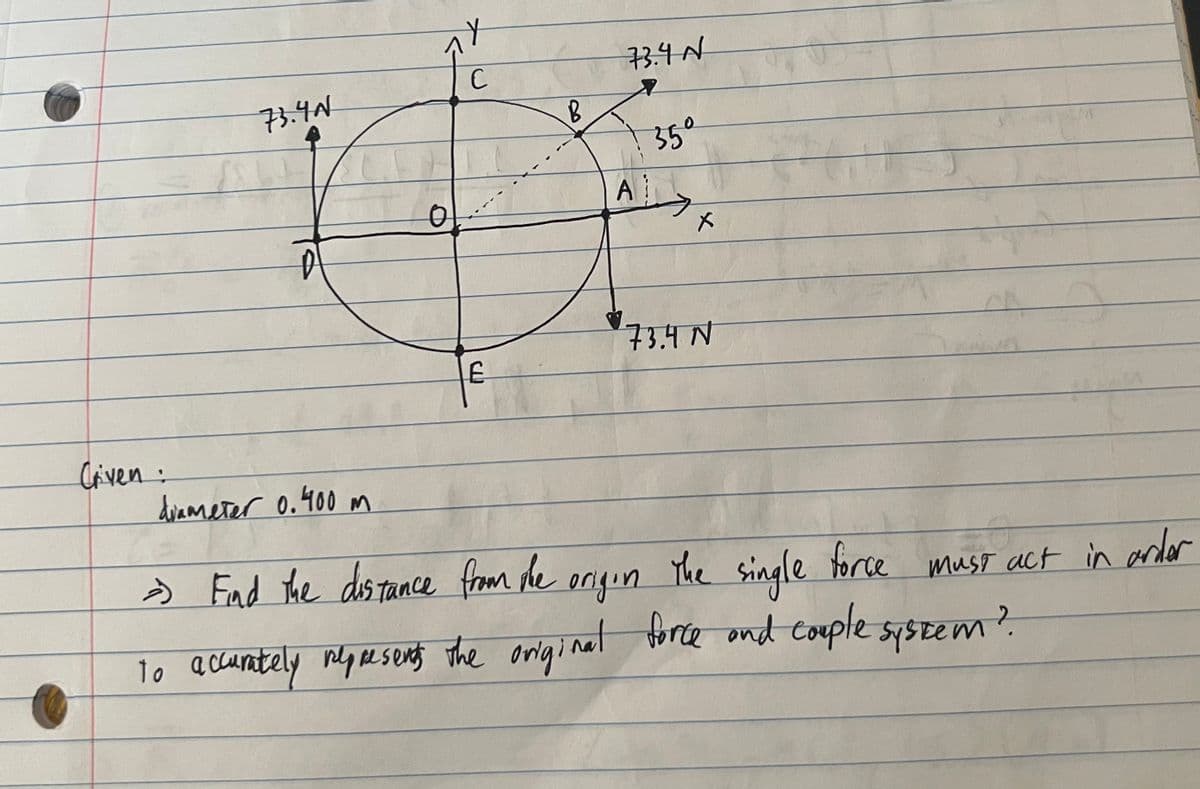 Y
C
73.4 N
73.4N
B
35°
A
O
X
D
73.4 N
E
Given :
diameter 0.400 m
⇒ Find the distance from the origin the single force must act in order
to accurately represent the original force and couple system?